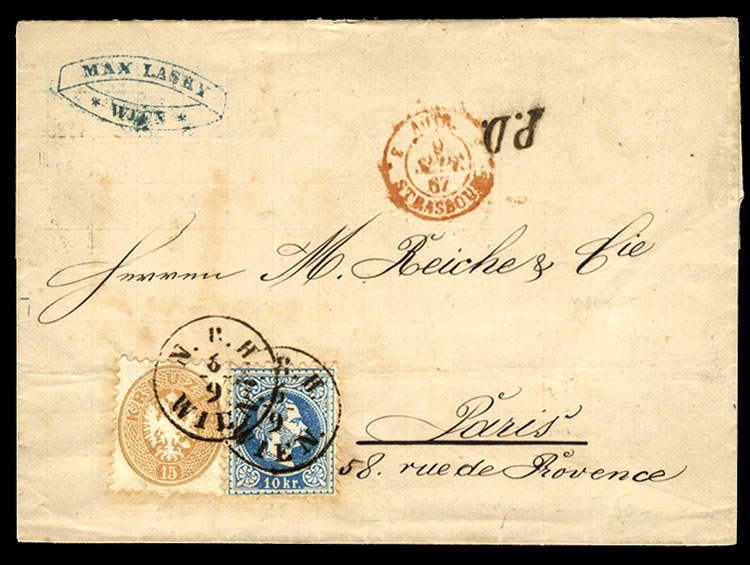 MAX LASKY
* WIEN *
P.D.
3 AUTR. 3
9
SEPT.
67
STRASBOURG
Herren M. Reiche & Cie
N. B. H.
6
9
WIEN
B. H.
6
9
WIEN
KREUZER
15
10 kr.
Paris
58. rue de Provence